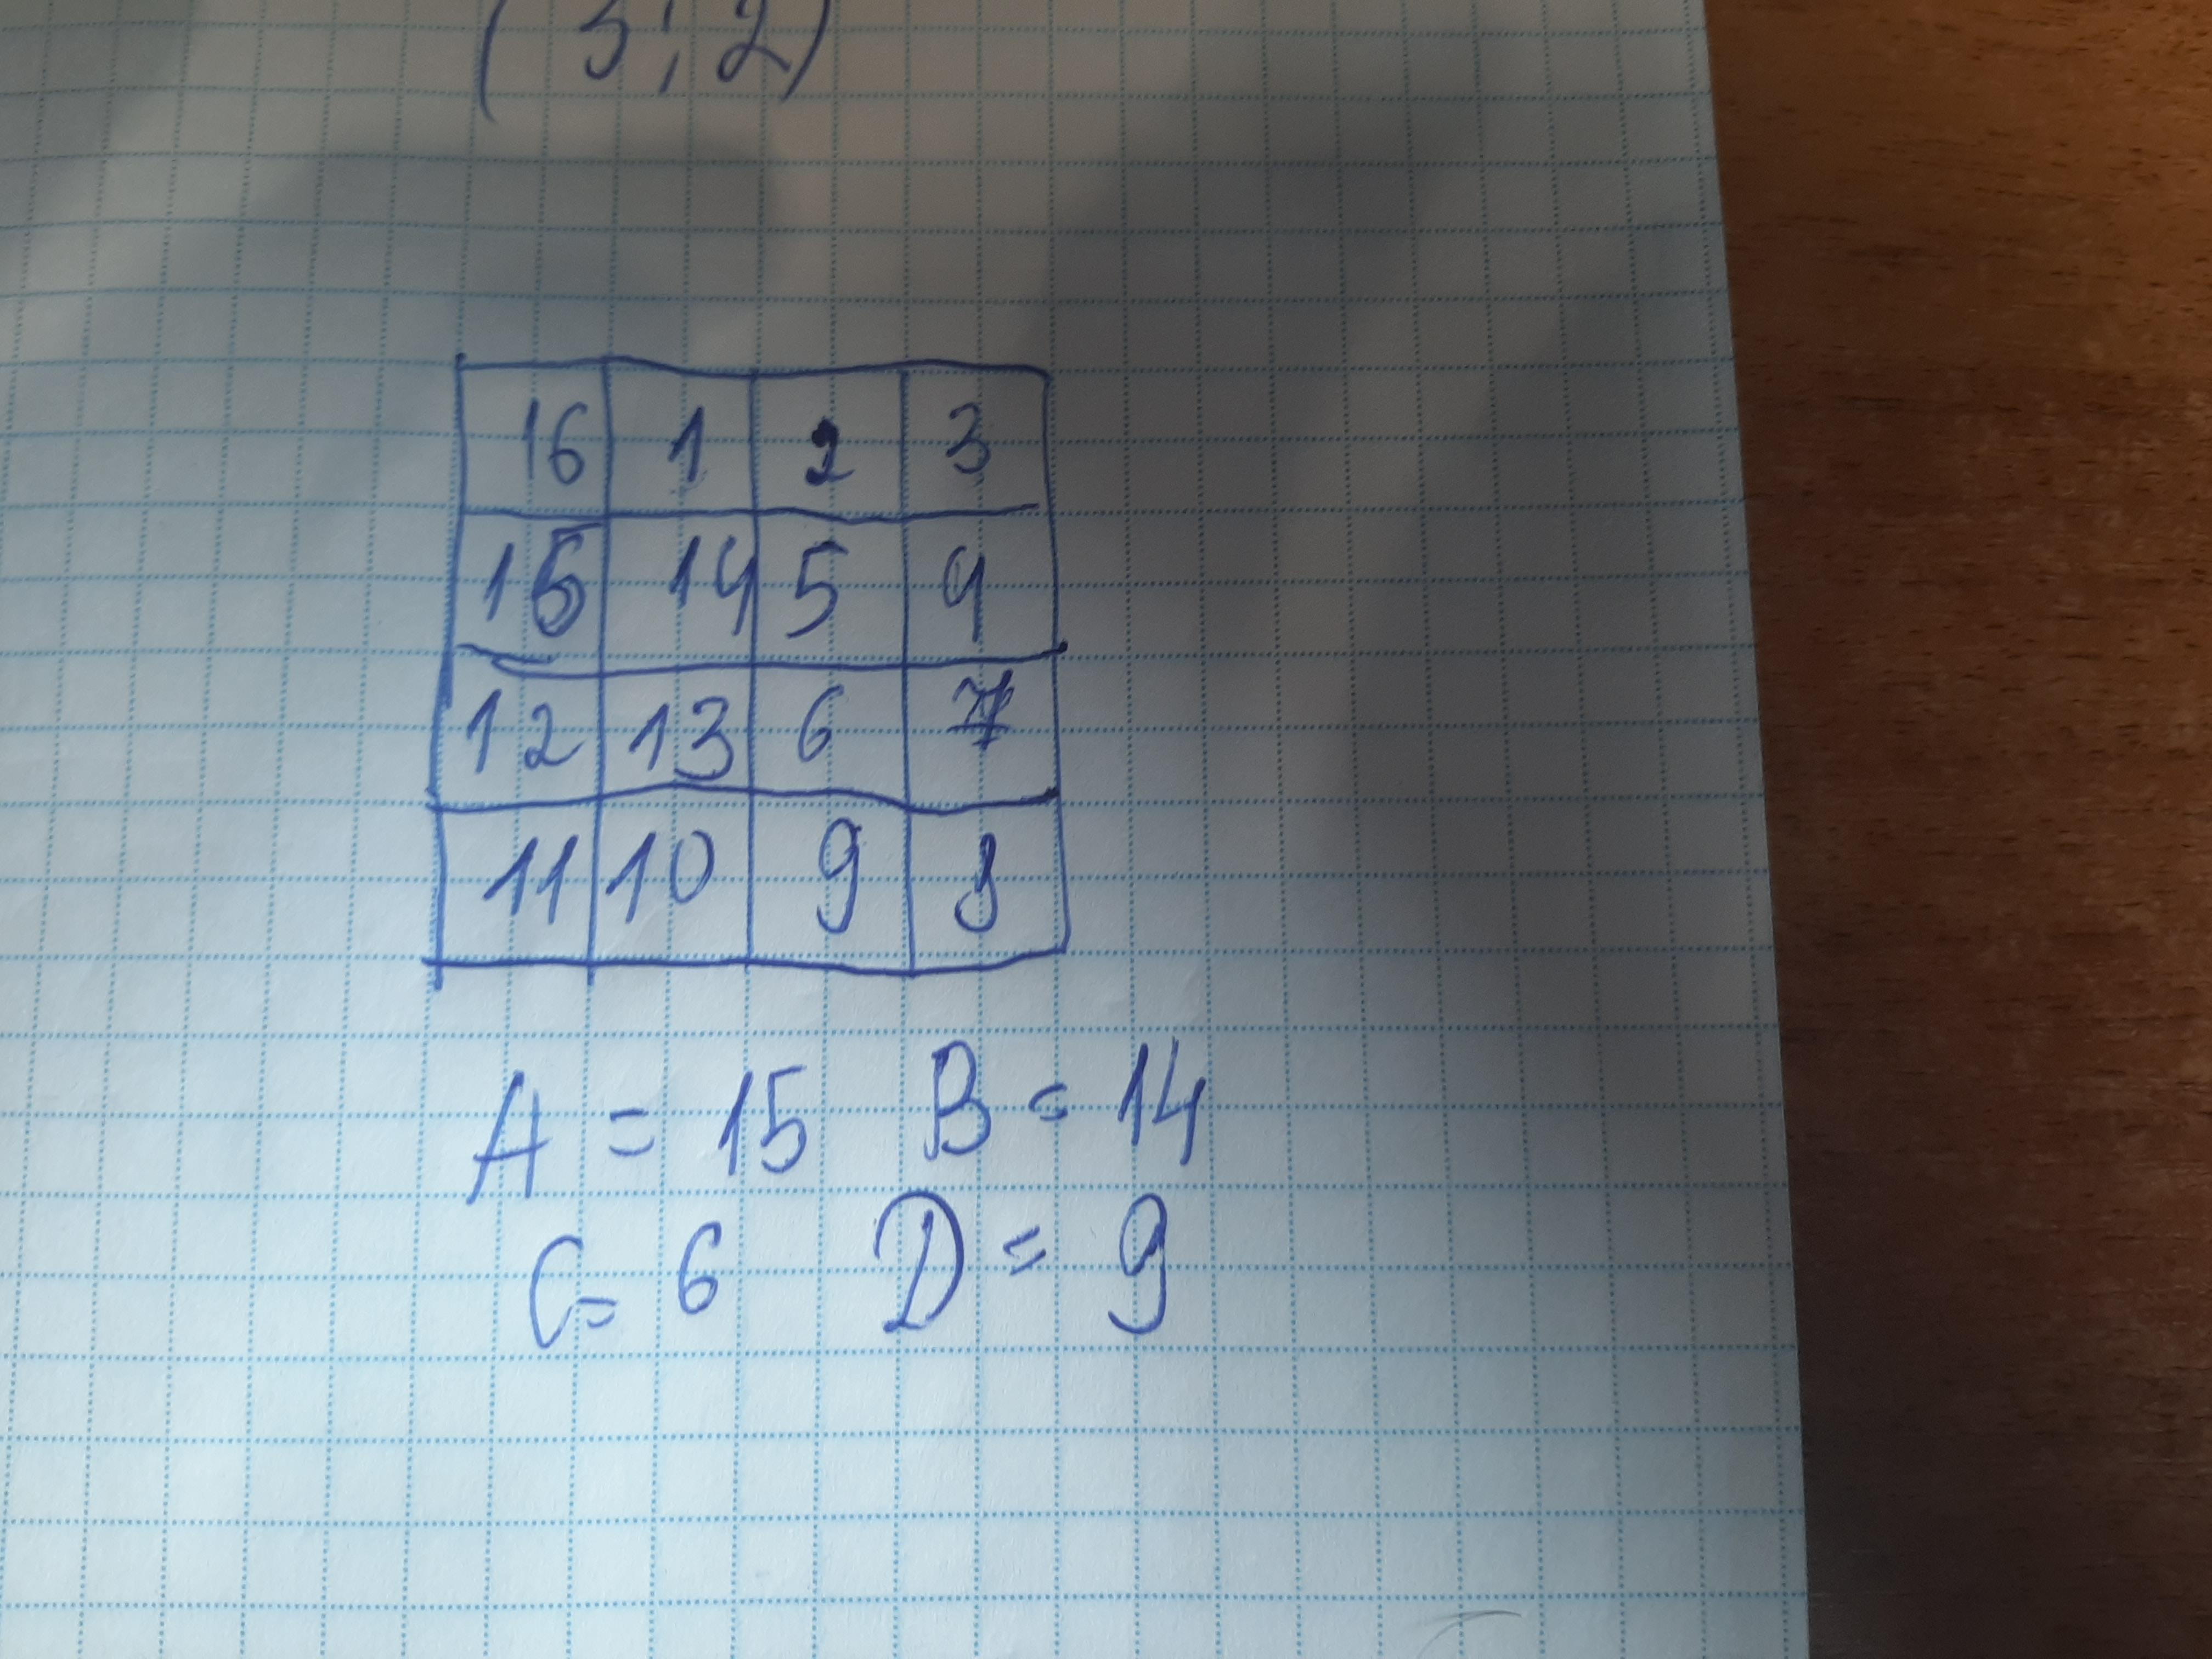 ( 3; 2)
16 1 2 3
15 14 5 4
12 13 6 7
11 10 9 8
A = 15 B = 14
C = 6 D = 9